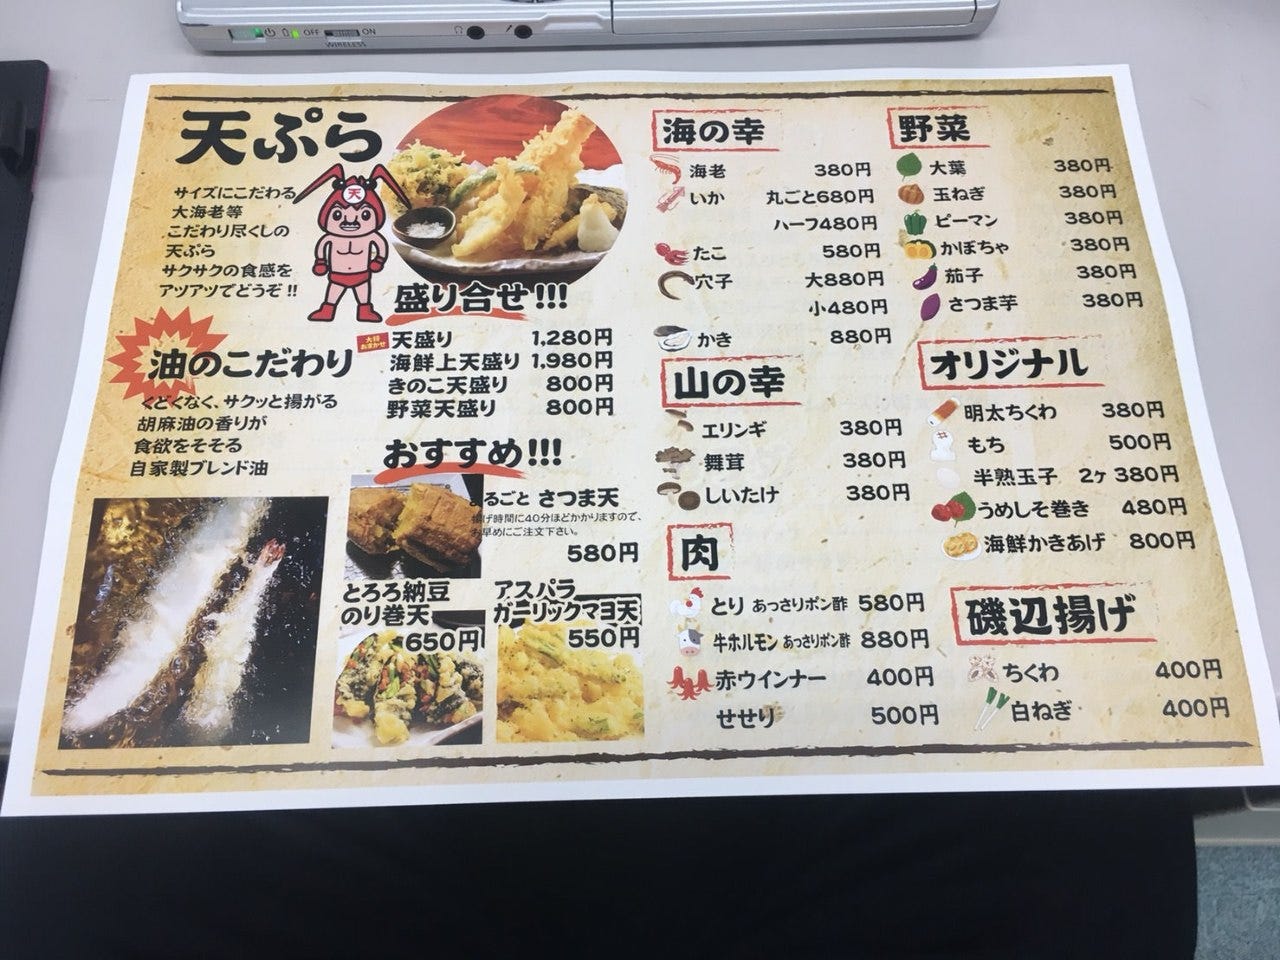 OFF ON
WIRELESS
天ぷら
サイズにこだわる
大海老等
こだわり尽くしの
天ぷら
サクサクの食感を
アツアツでどうぞ!!
天
油のこだわり
くどくなく、サクッと揚がる
胡麻油の香りが
食欲をそそる
自家製ブレンド油
盛り合せ!!!
大将おまかせ 天盛り 1,280円
海鮮上天盛り 1,980円
きのこ天盛り 800円
野菜天盛り 800円
おすすめ!!!
まるごと さつま天
揚げ時間に40分ほどかかりますので、
お早めにご注文下さい。
580円
とろろ納豆
のり巻天
650円
アスパラ
ガーリックマヨ天
550円
海の幸
海老 380円
いか 丸ごと680円
ハーフ480円
たこ 580円
穴子 大880円
小480円
かき 880円
山の幸
エリンギ 380円
舞茸 380円
しいたけ 380円
肉
とり あっさりポン酢 580円
牛ホルモン あっさりポン酢 880円
赤ウインナー 400円
せせり 500円
野菜
大葉 380円
玉ねぎ 380円
ピーマン 380円
かぼちゃ 380円
茄子 380円
さつま芋 380円
オリジナル
明太ちくわ 380円
もち 500円
半熟玉子 2ヶ 380円
うめしそ巻き 480円
海鮮かきあげ 800円
磯辺揚げ
ちくわ 400円
白ねぎ 400円